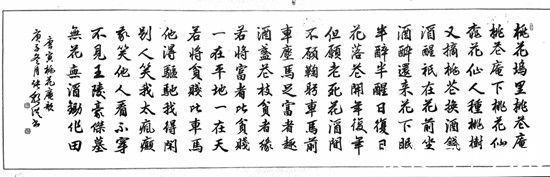 桃花塢里桃花庵
桃花庵下桃花仙
桃花仙人種桃樹
又摘桃花換酒錢
酒醒祇在花前坐
酒醉還來花下眠
半醉半醒日復日
花落花開年復年
但願老死花酒間
不願鞠躬車馬前
車塵馬足富者趣
酒盞花枝貧者緣
若將富者比貧賤
一在平地一在天
若將貧賤比車馬
他得驅馳我得閑
別人笑我太瘋癲
我笑他人看不穿
不見五陵豪傑墓
無花無酒鋤作田
唐寅桃花庵歌
庚子冬月書